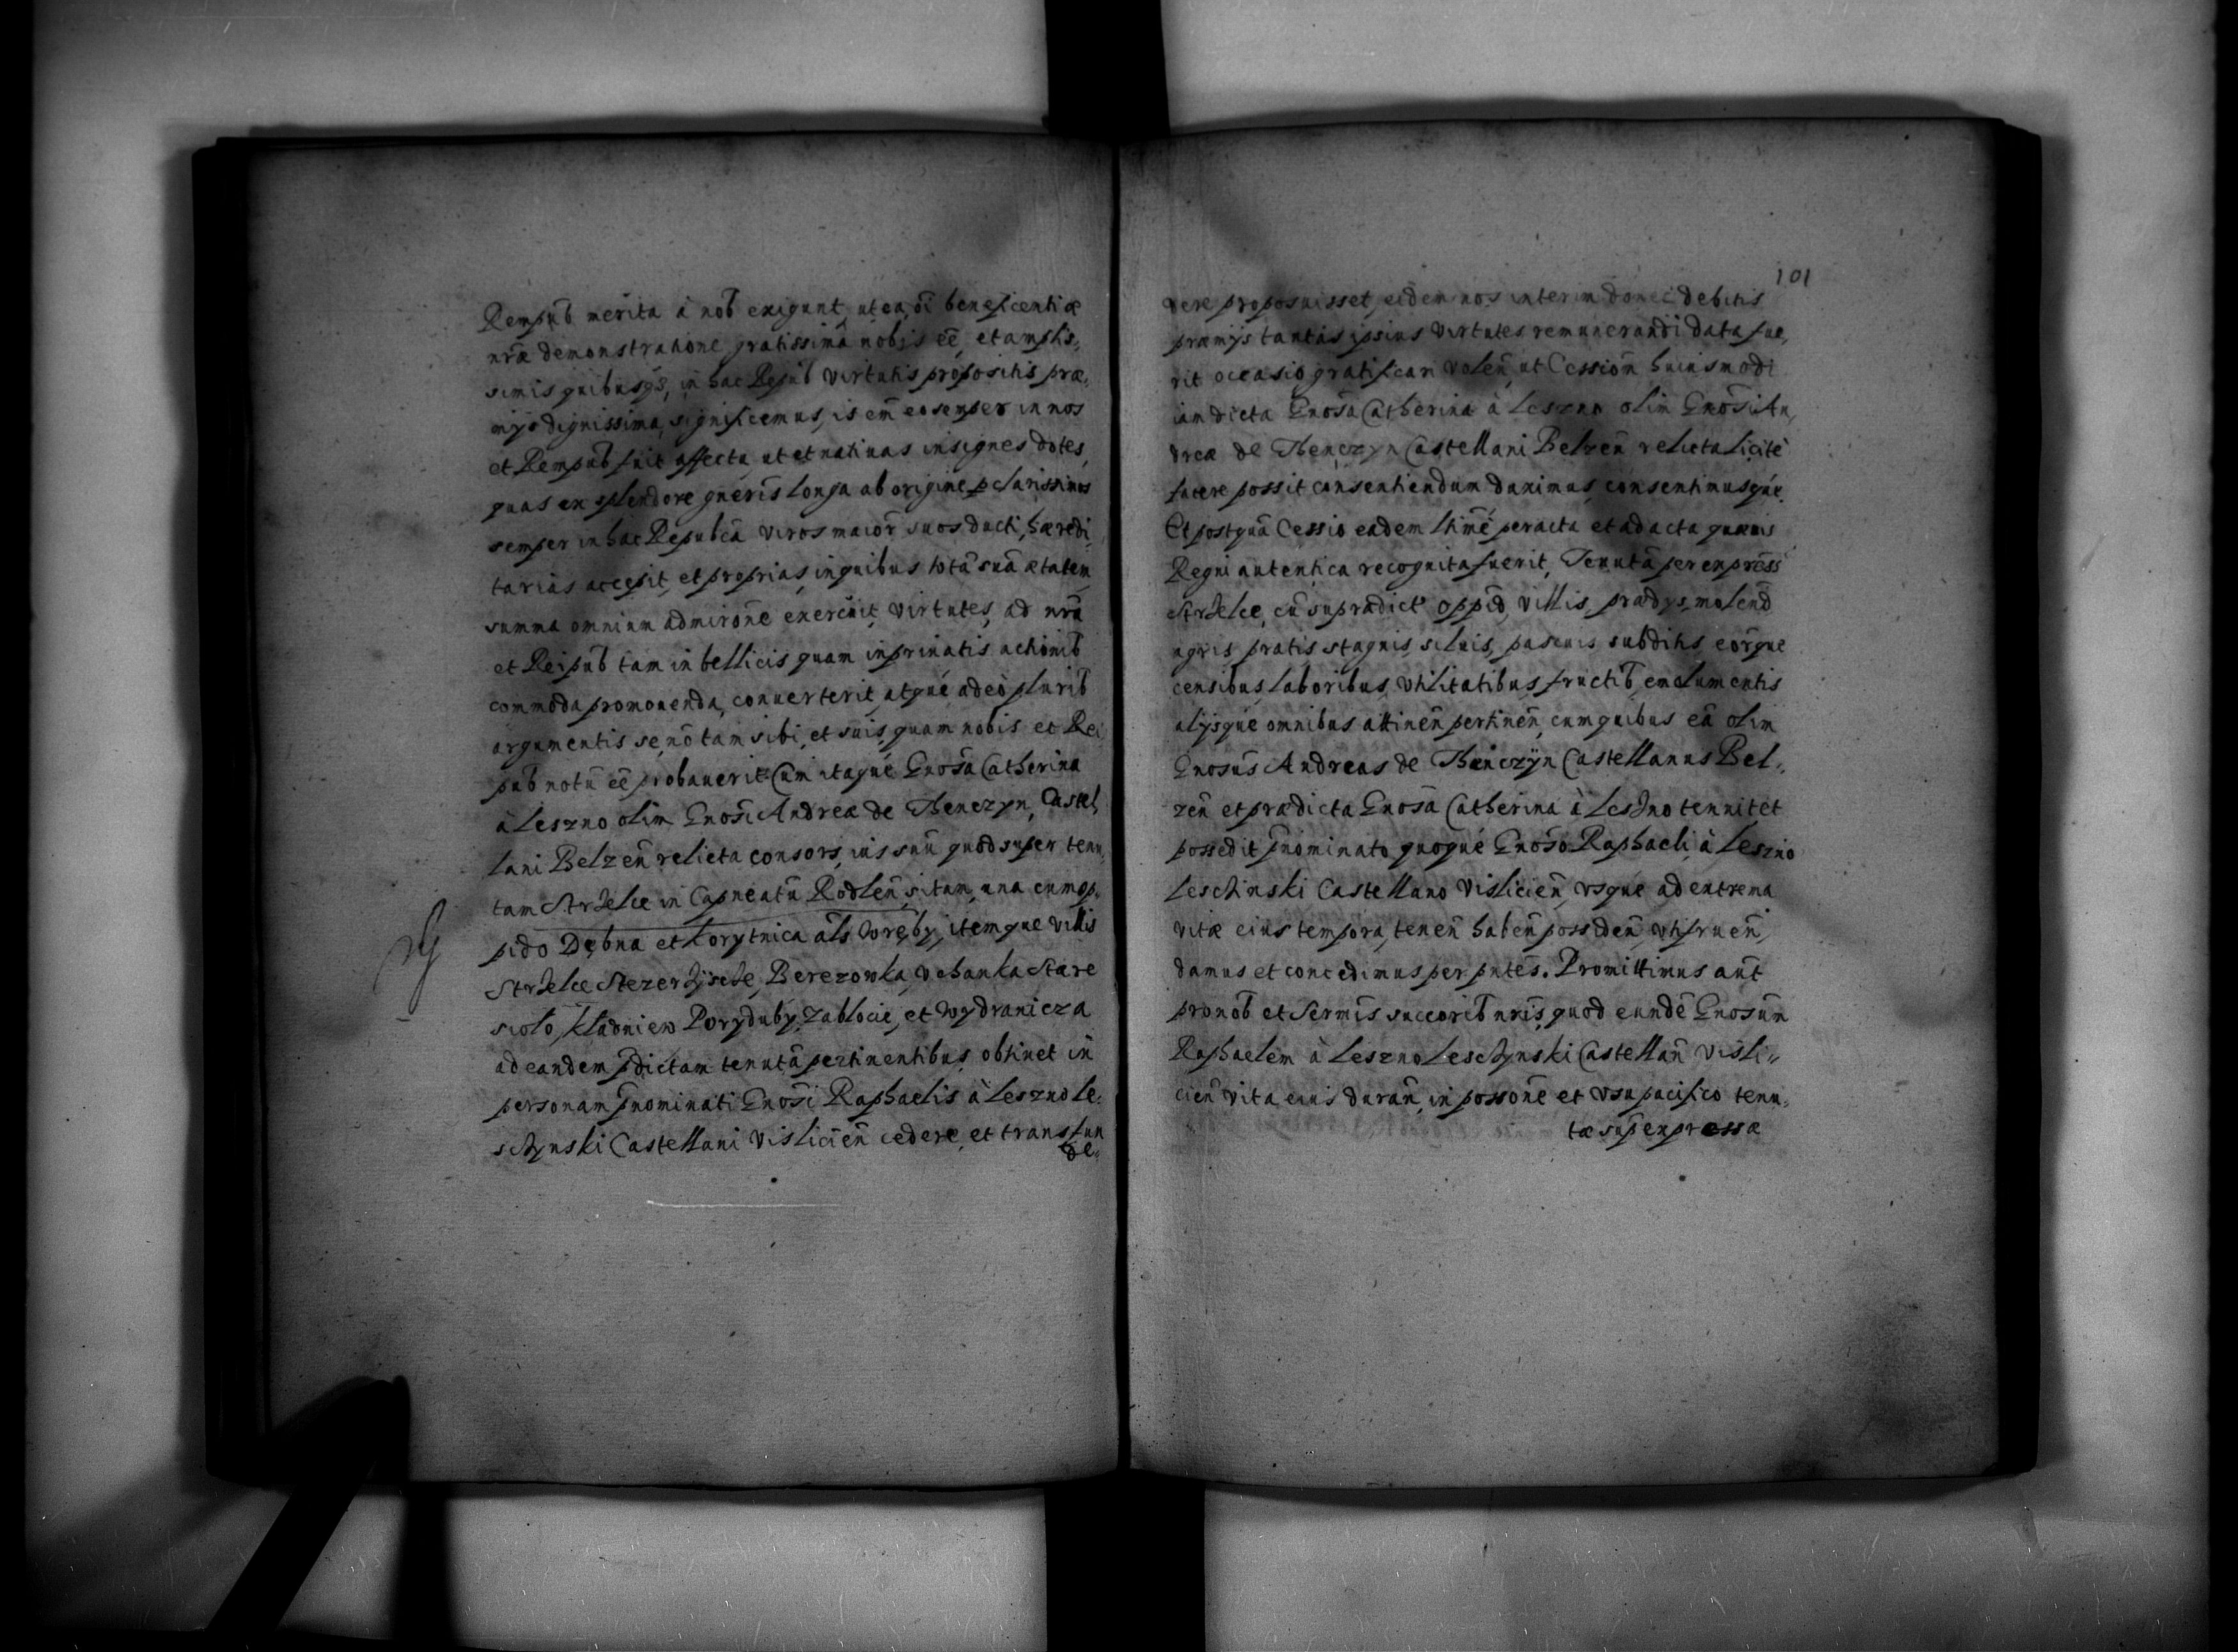 Rempub̃ merita à nob̃ exigunt, ut ea, õi beneficentiæ
nr̃æ demonstratione gratissimã nobis eẽ, et amplis,
simis quibusqȝ, in hac Repub̃ virtutis propositis præ,
mijs dignissima, significemus, is em̃ eo semper in nos
et Rempub̃ fuit affectu ut et natiuas insignes dotes,
quas ex splendore gneris̃ longa ab origine p̱clarissimos
semper in hac Republcã viros maior̃ suos ducti, hæredi,
tarias accepit, et proprias, in quibus totã suã ætatem
summa omnium admironẽ exercuit, virtutes, ad nrã
et Reipub̃ tam in bellicis quam in priuatis actionib̃
commoda promouenda, conuerterit, atqué adeò plurib̃
argumentis se, nõ tam sibi, et suis, quam nobis et Rei,
pub̃ notũ eẽ probauerit Cum itaqué Gnosã Catherina
à Leszno olim Gnosĩ Andreæ de Thenczyn, Castel,
lani Belzeñ relicta consors, ius suũ quod super tenu,
tam Strzelce in Capneatũ Rodleñ, sitam, una cum op,
pido Dębna et Korytnica al̃s Woręby, itemque villis
Strzelce Stezerzysche, Berezowka, Vchanka Stare
sioło, Kładniew Poryduby, Zablocie, et Wydranicza
ad eandem p̃dictam tenutã pertinentibus, obtinet in
personam p̃nominati Gnosĩ Raphaelis à Leszno Le,
schynski Castellani Visliciẽn cedere, et transfun
de,
101
dere proposuisset, eidem nos interim donec debitis
præmijs tantas ipsius virtutes remunerandi data fue,
rit occasio gratificari voleñ, ut Cessioñ huiusmodi
iam dicta Gnosã Catherina à Leszno olim Gnosĩ An,
dreæ de Thenczyn Castellani Belzeñ relicta licitè
facere possit consentiendum duximus, consentimusqué.
Et postquã Cessio eadem ltimẽ peracta et ad acta quæuis
Regni autentica recognita fuerit, Tenutã per express̃
Strzelce, cũ supradict' oppid̃, villis, prædijs, molend̃
agris pratis stagnis, siluis, pascuis subditis eor̃que
censibus, laboribus, vtilitatibus, fructib̃, emolumentis
alijsqué omnibus attineñ pertineñ, cum quibus eã olim
Gnosũs Andreas de Thenczÿn Castellanus Bel,,
zeñ et prædicta Gnosã Catherina à Leszno tenuit, et
possedit p̃nominato quoqué Gnosõ Raphaeli, à Leszno
Leschinski Castellano Visliciẽn, vsque ad extrema
vitæ eius tempora, teneñ habeñ possideñ, vtifrueñ,
damus et concedimus per pntẽs. Promittimus aũt
pro nob̃ et Sermĩs succorib̃ nrĩs, quod eundẽ Gnosũm
Raphaelem à Leszno Leschynski Castellañ Visli,,
cieñ vita eius durañ, in possonẽ et vsu pacifico tenu,
tæ sup̃ expressæ